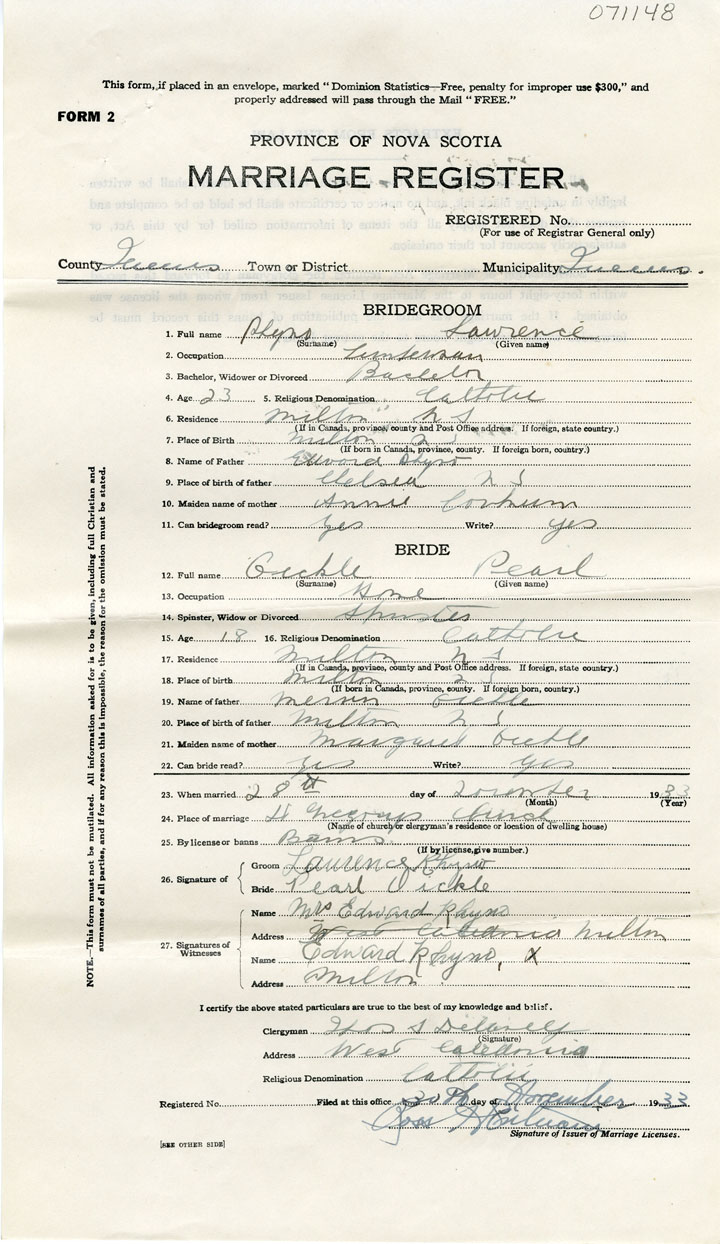 071148
This form, if placed in an envelope, marked "Dominion Statistics—Free, penalty for improper use $300," and
properly addressed will pass through the Mail "FREE."
FORM 2
PROVINCE OF NOVA SCOTIA
MARRIAGE REGISTER
REGISTERED No.
(For use of Registrar General only)
County Queens Town or District Municipality Queens.
BRIDEGROOM
1. Full name Rhyno Lawrence
(Surname) (Given name)
2. Occupation Lumberman
3. Bachelor, Widower or Divorced Bachelor
4. Age 23 5. Religious Denomination Catholic
6. Residence Milton N S
(If in Canada, province, county and Post Office address. If foreign, state country.)
7. Place of Birth Milton N S
(If born in Canada, province, county. If foreign born, country.)
8. Name of Father Edward Rhyno
9. Place of birth of father Chelsea N S
10. Maiden name of mother Annie Corkum
11. Can bridegroom read? Yes Write? yes
BRIDE
12. Full name Oickle Pearl
(Surname) (Given name)
13. Occupation Home
14. Spinster, Widow or Divorced Spinster
15. Age 18 16. Religious Denomination Catholic
17. Residence Milton N S
(If in Canada, province, county and Post Office address. If foreign, state country.)
18. Place of birth Milton N S
(If born in Canada, province, county. If foreign born, country.)
19. Name of father Mervin Oickle
20. Place of birth of father Milton N S
21. Maiden name of mother Margaret Oickle
22. Can bride read? Yes Write? Yes
23. When married 28th day of 1933
(Month) (Year)
24. Place of marriage St Gregorys Church
(Name of church or clergyman's residence or location of dwelling house)
25. By license or banns Banns
(If by license, give number.)
26. Signature of Groom Laurence Rhyno
Bride Pearl Oickle
27. Signatures of Witnesses
Name Mrs Edward Rhyno
Address West Caledonia Milton
Name Edward Rhyno, X
Address Milton
I certify the above stated particulars are true to the best of my knowledge and belief.
Clergyman Thos
(Signature)
Address West Caledonia
Religious Denomination Catholic
Registered No. Filed at this office 30th day of November 1933
Signature of Issuer of Marriage Licenses.
[SEE OTHER SIDE]
NOTE.—This form must not be mutilated. All information asked for is to be given, including full Christian and
surnames of all parties, and if for any reason this is impossible, the reason for the omission must be stated.